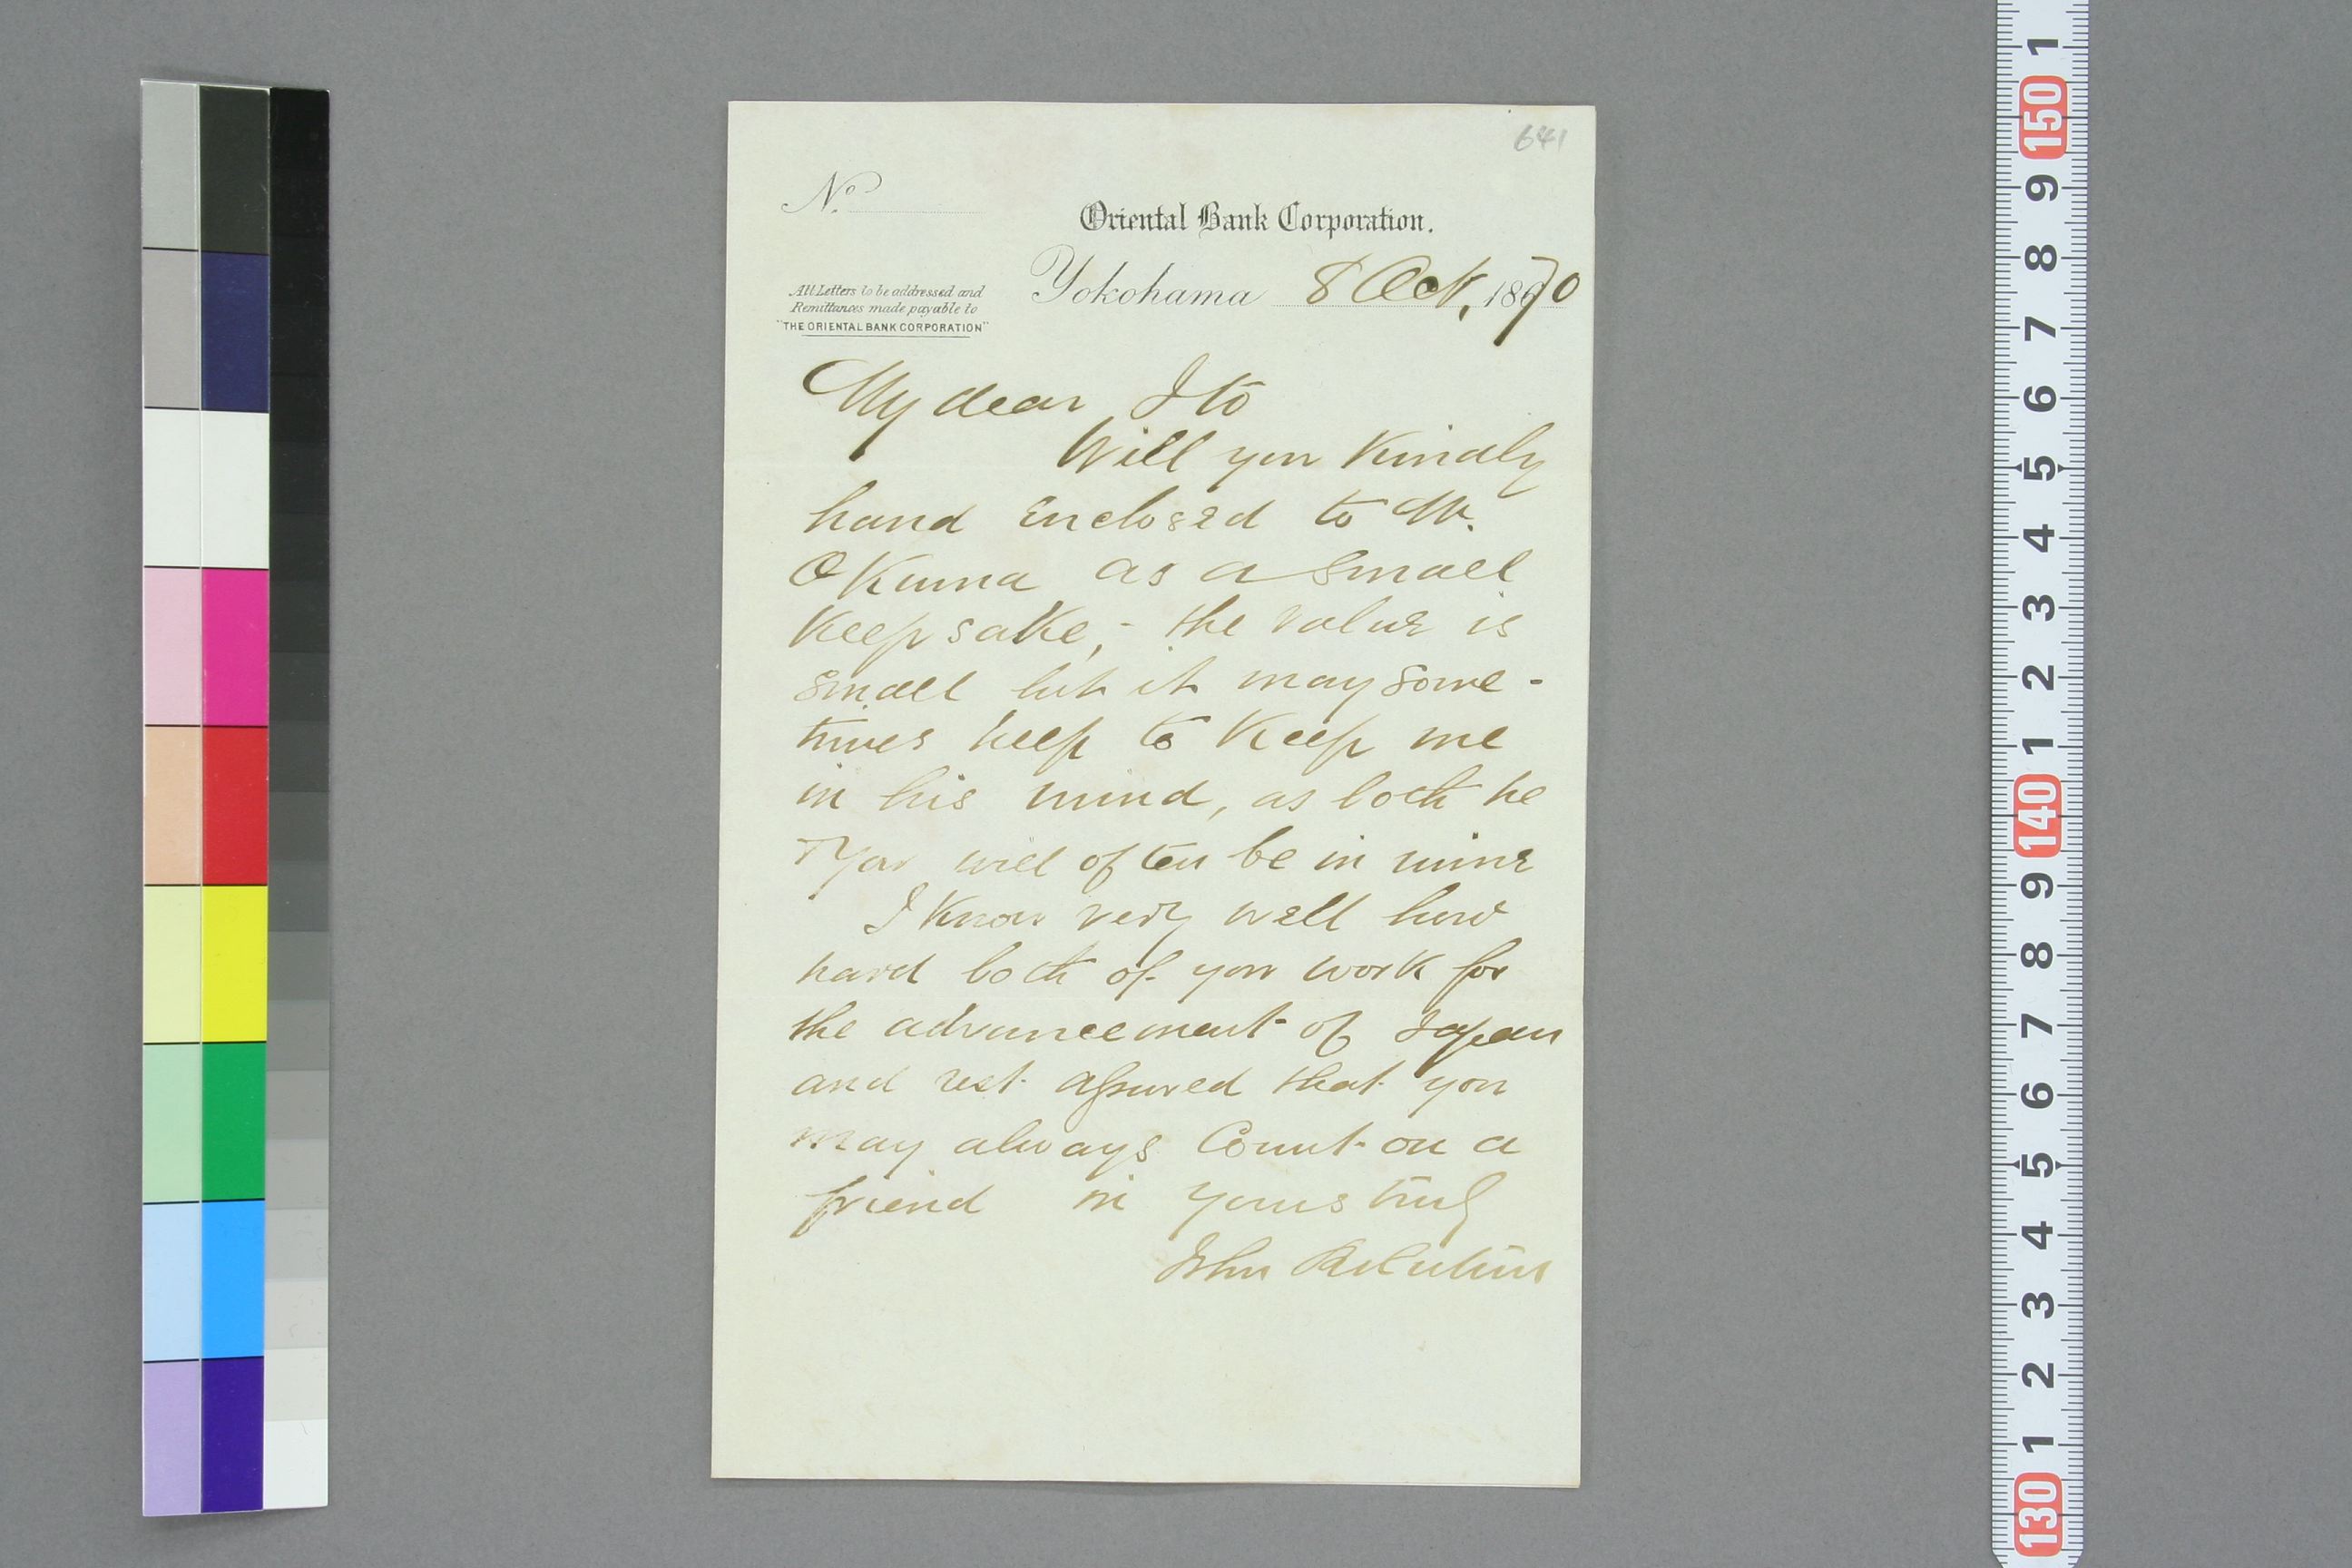 641
No.
Oriental Bank Corporation.
Yokohama 8 Oct, 1870
All Letters to be addressed and
Remittances made payable to
"THE ORIENTAL BANK CORPORATION"
My dear Ito
Will you kindly
hand enclosed to Mr.
Okuma as a small
keepsake,- the value is
small but it may some-
times help to keep me
in his mind, as both he
& you will often be in mine
I know very well how
hard both of you work for
the advancement of Japan
and rest assured that you
may always count on a
friend in yours truly
John Robertson
1
150
9
8
7
6
5
4
3
2
1
140
9
8
7
6
5
4
3
2
1
130